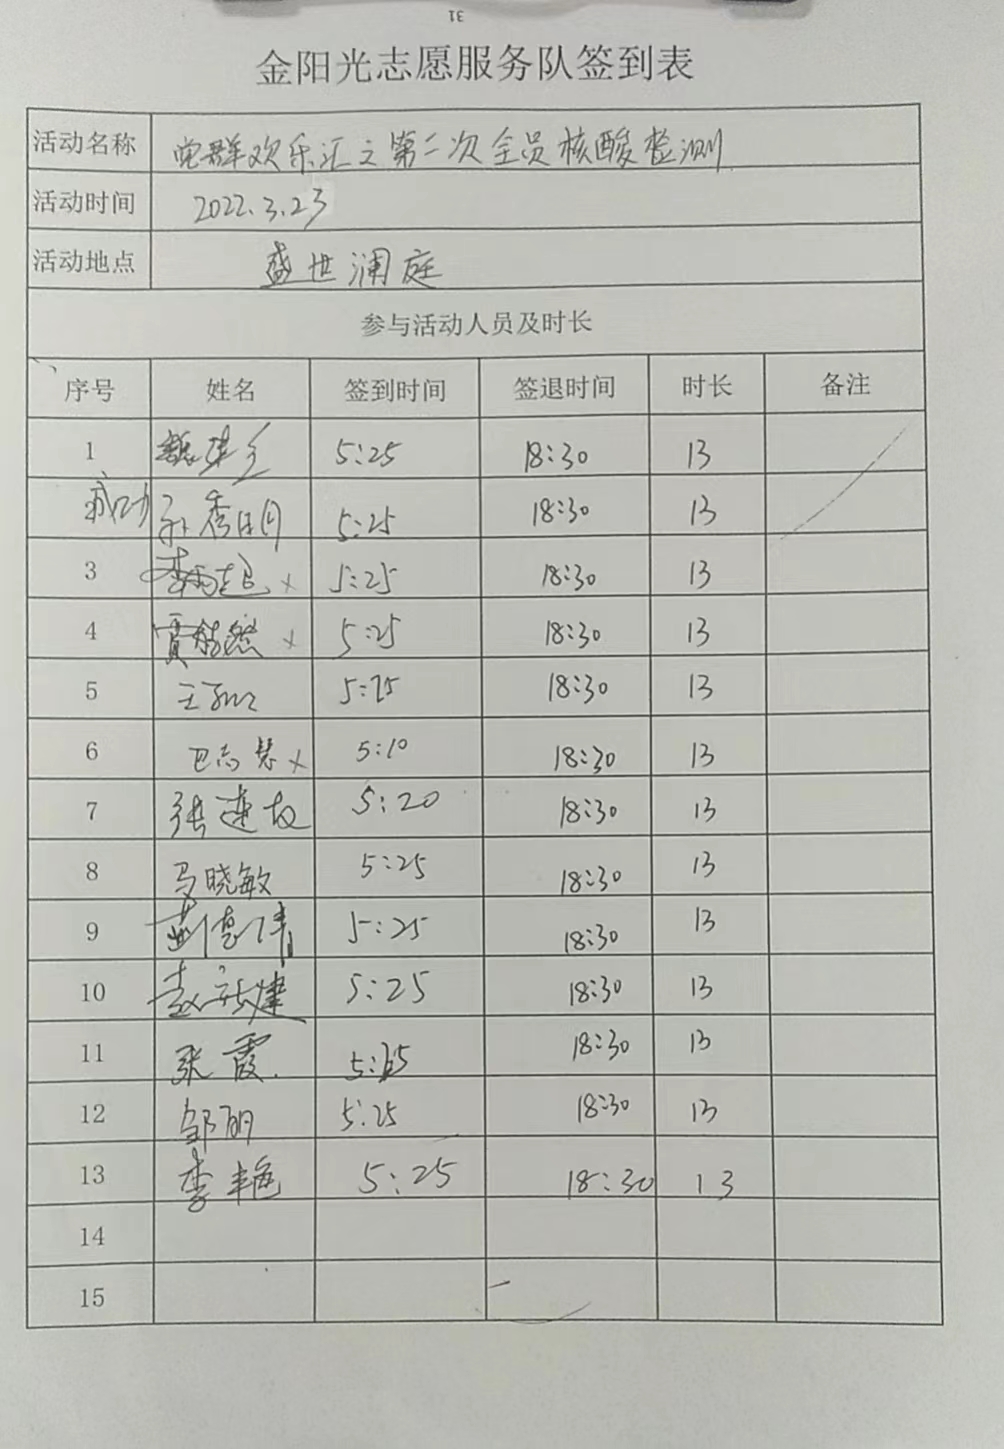 31
金阳光志愿服务队签到表
活动名称 党群欢乐汇之第二次全员核酸检测
活动时间 2022.3.23
活动地点 盛世澜庭
参与活动人员及时长
序号 姓名 签到时间 签退时间 时长 备注
1 5:25 18:30 13
5:25 18:30 13
3 5:25 18:30 13
4 x 5:25 18:30 13
5 5:25 18:30 13
6 志慧 x 5:10 18:30 13
7 张连 5:20 18:30 13
8 马晓敏 5:25 18:30 13
9 5:25 18:30 13
10 5:25 18:30 13
11 张霞. 18:30 13
12 邹丽 5:25 18:30 13
13 李艳 5:25 18:30 13
14
15